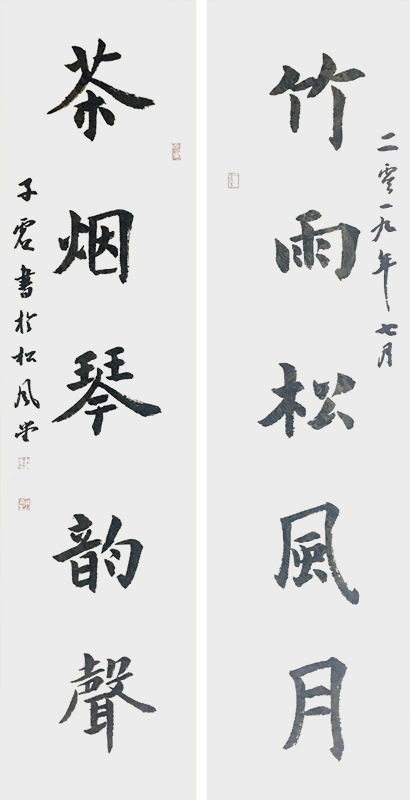 二零一九年七月
竹雨松風月
茶烟琴韵聲
子書於松风堂